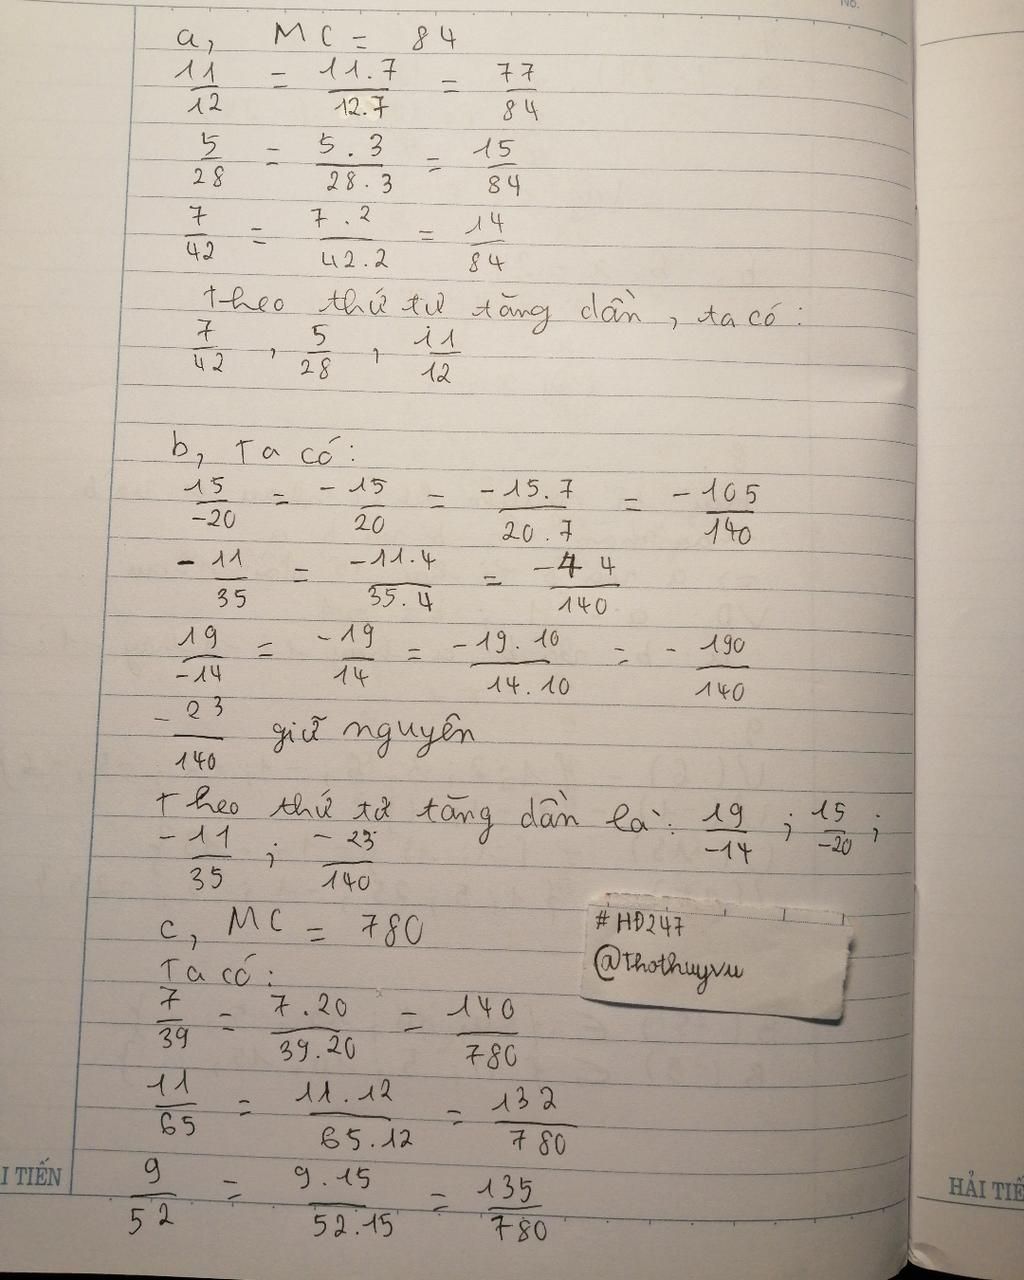 No.
a, MC = 84
11/12 = 11.7/12.7 = 77/84
5/28 = 5.3/28.3 = 15/84
7/42 = 7.2/42.2 = 14/84
theo thứ tự tăng dần, ta có:
7/42, 5/28, 11/12
b, Ta có:
15/-20 = -15/20 = -15.7/20.7 = -105/140
-11/35 = -11.4/35.4 = -44/140
19/-14 = -19/14 = -19.10/14.10 = -190/140
-23/140 giữ nguyên
theo thứ tự tăng dần là: 19/-14; 15/-20;
-11/35; -23/140
c, MC = 780
#HĐ247
@thothuyvu
Ta có:
7/39 = 7.20/39.20 = 140/780
11/65 = 11.12/65.12 = 132/780
9/52 = 9.15/52.15 = 135/780
I TIẾN
HẢI TIẾ